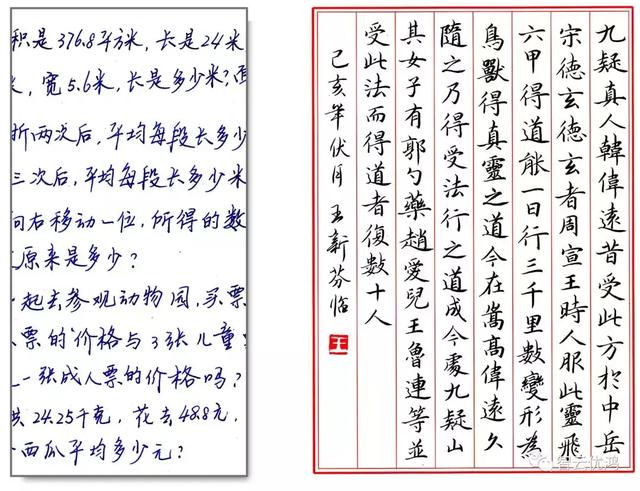 积是376.8平方米，长是24米
，宽5.6米，长是多少米？面
折两次后，平均每段长多少
三次后，平均每段长多少米
向右移动一位，所得的数
原来是多少？
一起去参观动物园，买票
票的价格与3张儿童
一张成人票的价格吗？
共24.25千克，花去48.8元，
西瓜平均多少元？
九疑真人韓偉遠昔受此方於中岳
宋德玄德玄者周宣王時人服此靈飛
六甲得道能一日行三千里數變形為
鳥獸得真靈之道今在嵩高偉遠久
隨之乃得受法行之道成今處九疑山
其女子有郭勺藥趙愛兒王魯連等並
受此法而得道者復數十人
己亥年伏月王新芬临
王
智云优鸿